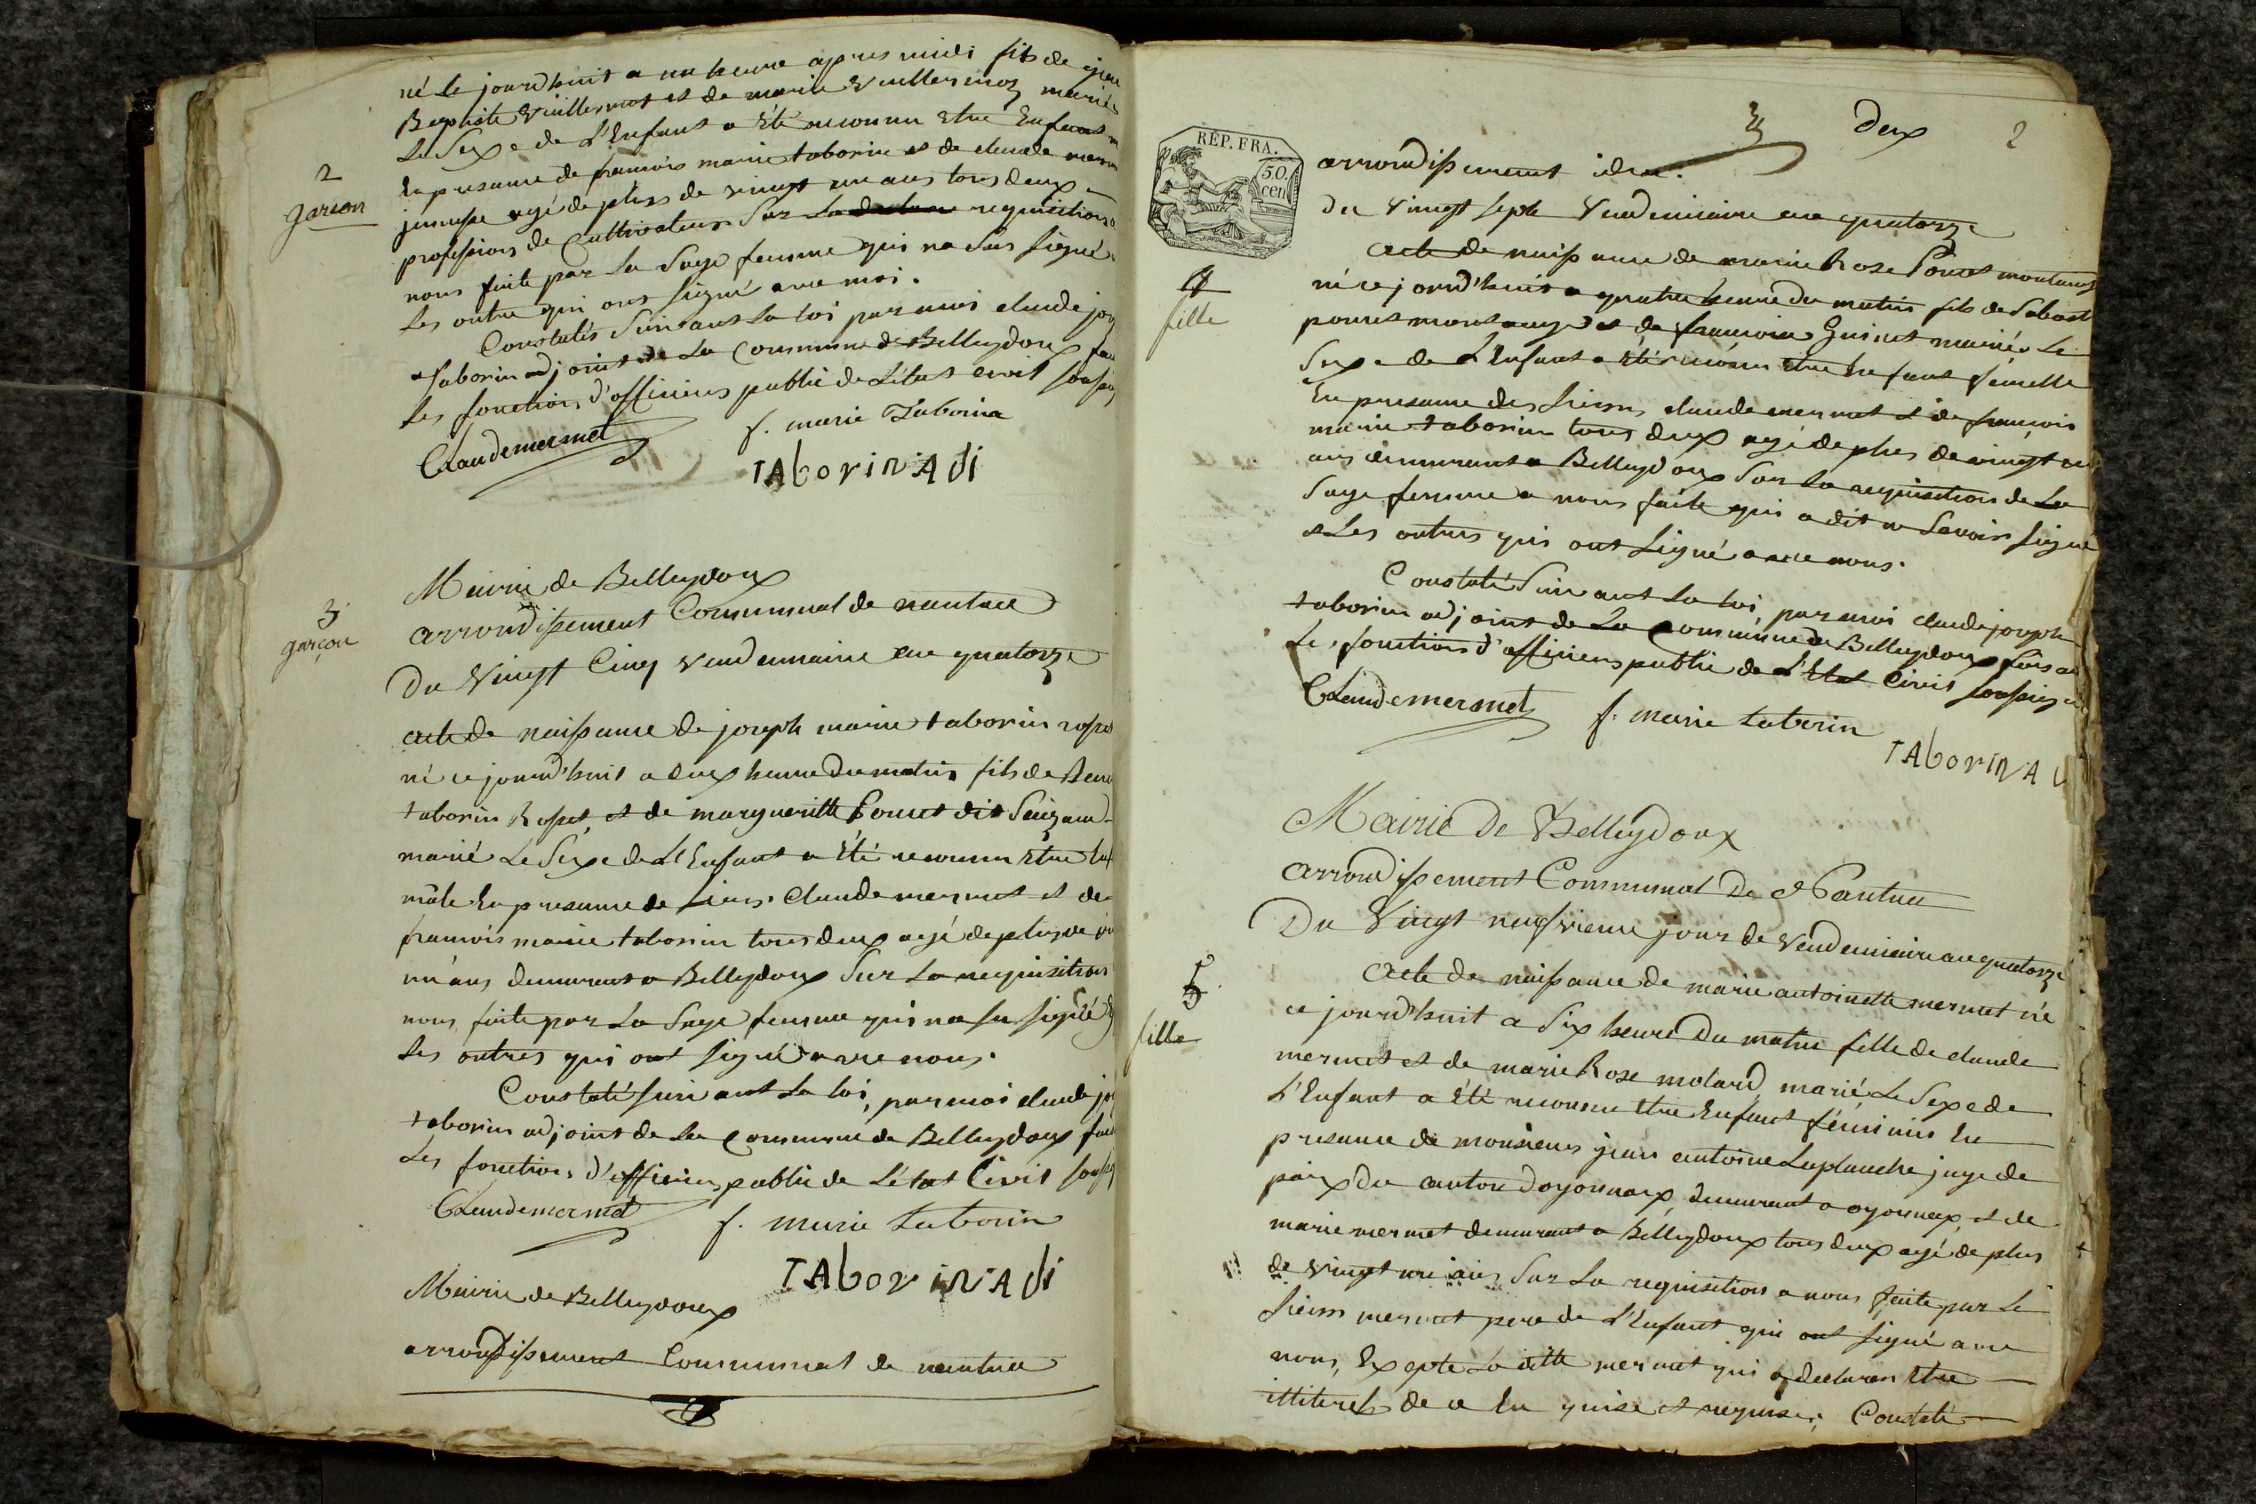 né le jourd'huit a un heure apres midi fils de jean
Baptiste Vuillermoz et de marie Vuillermoz mariés
Le Sexe de L'Enfant a Eté reconnu Etre Enfant
2
En presance de francois marie taborin et de claude mermet
garcon
agé de plus de vingt un ans tous deux
profession de Cultivateur Sur La requisition a
nous faite par La Sage femme qui na Sus Signé
Les outre qui ons Signé avec moi.
Constatés Suivant La loi par moi claude jos
taborin adjoint de La Commune de Belleydoux
Les fonctions d'officiers public de L'état civil
Claude mermet
f. marie Taborin
TAborin Adj
Mairie de Belleydoux
3
garçon
arrondissement Communal de nantua
Du Vingt Cinq Vendemiaire an quatorze
acte de naissance de joseph marie taborin rosset
né ce jourd'huit a deux heure du matin fils de
taborin Rosset et de margueritte Poncet dit
marié Le Sexe de L'Enfant a Eté reconnu Etre
mâle En presance de Sieurs Claude mermet et de
francois marie taborin tous deux agé de plus de
un ans demeurant a Belleydoux Sur La requisition
nous faite par La Sage femme qui na su signé
Les outres qui ont signé avec nous.
Constaté suivant La loi, par moi claude jos
taborin adjoint de La Commune de Belleydoux
Les fonctions d'officiers public de L'état Civil
Claude mermet
f. marie taborin
TAborin Adj
Mairie de Belleydoux
arrondissement Communal de nantua
deux 2
RÉP. FRA.
50.
cen
arrondissement idem.
du Vingt Sept Vendemiaire an quatorze
acte de naissance de marie Rose Poncet montange
4
fille
né ce jourd'huit a quatre heure du matin fils de Sabast
poncet montange et de francoise Guinet mariés Le
Sexe de L'Enfant a Eté reconu Etre Enfant femelle
En presance des Sieurs claude mermet et de francois
marie taborin tous deux agé de plus de vingt un
ans demeurant a Belleydoux Sur La requisition de La
Sage femme a nous faite qui a dit ne Savoir signe
et Les outres qui ont Signé avec nous.
Constaté Suivant La loi, par moi claude joseph
taborin adjoint de La Commune de Belleydoux
Les fonctions d'officiers public de L'Etat Civil
Claude mermet
f. marie taborin
TAborin A
Mairie De Belleydoux
arrondissement Communal De Nantua
Du Vingt neufvieme jour de Vendemiaire an quatorze
5
fille
acte de naissance de marie antoinette mermet né
ce jourd'huit a Six heure du matin fille de claude
mermet et de marie Rose molard marié Le Sexe de
L'Enfant a Eté reconnu Etre Enfant féminin En
presance de monsieur jean antoine Laplanche juge de
paix du canton d'oyonnax, demeurant a oyonnax, et de
marie mermet demeurant a Belleydoux tous deux agé de plus
de vingt un ans Sur La requisition a nous faite par Le
Sieur mermet pere de L'Enfant qui ont signé avec
nous, Excepte La ditte mermet qui a declarer Etre
illiterés de ce En quise et requise. Constaté